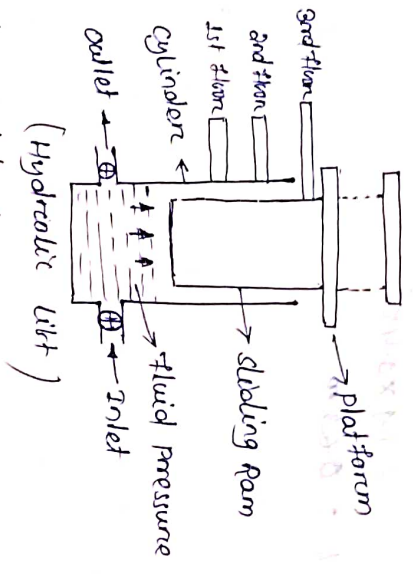 3rd floor
2nd floor
1st floor
Cylinder
outlet
platform
sliding Ram
fluid pressure
Inlet
(Hydraulic lift)